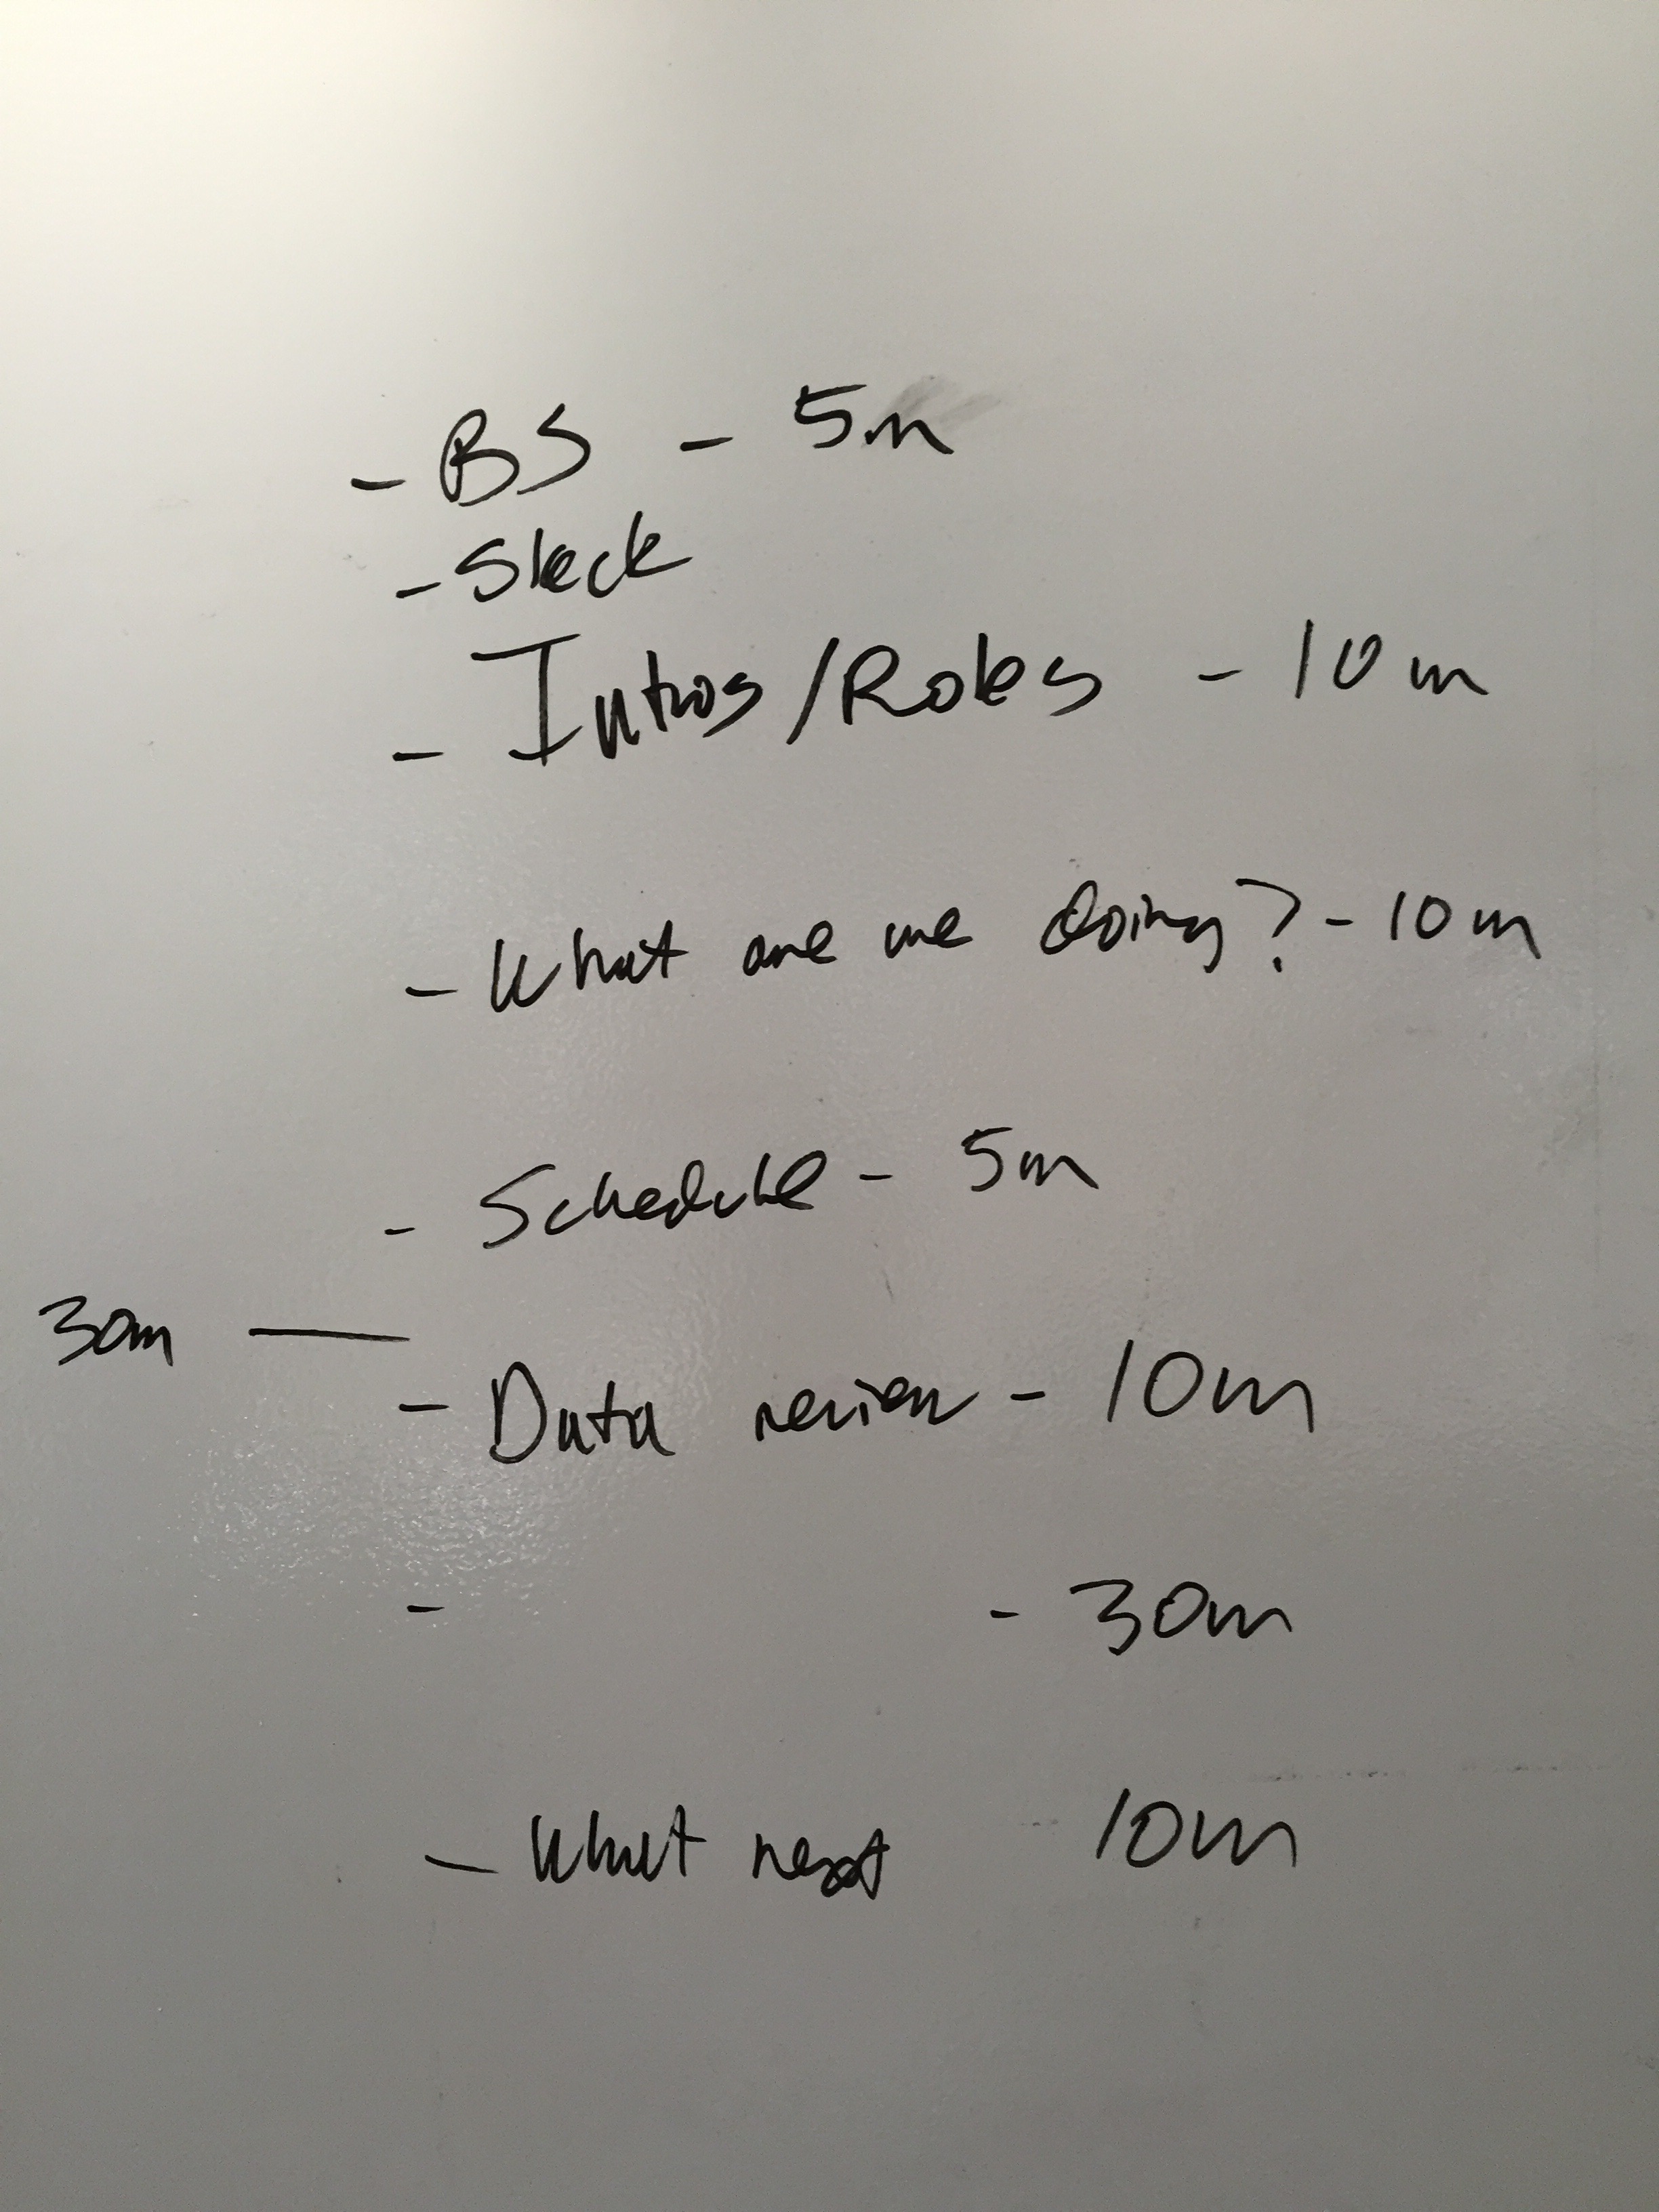 - BS - 5m
- Slack
- Intros/Roles - 10m
- What are we doing? - 10m
- Schedule - 5m
30m —
- Data review - 10m
- - 30m
- What next 10m